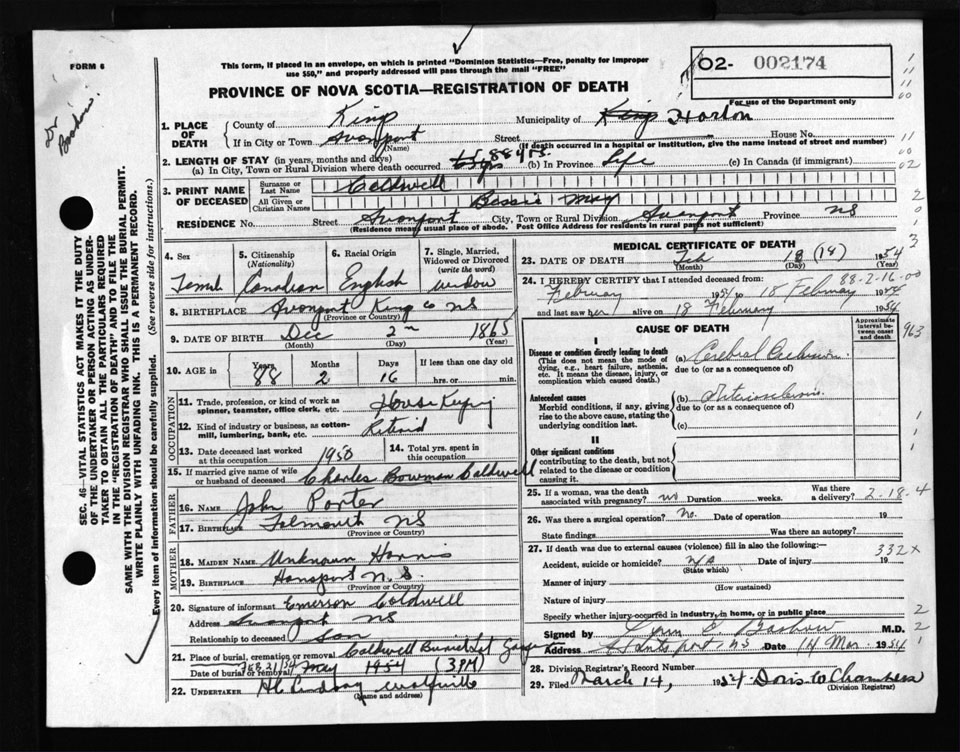 FORM 6
This form, if placed in an envelope, on which is printed "Dominion Statistics—Free, penalty for improper
use $50," and properly addressed will pass through the mail "FREE"
O2- 002174
For use of the Department only
PROVINCE OF NOVA SCOTIA—REGISTRATION OF DEATH
Dr Bashow
SEC. 46—VITAL STATISTICS ACT MAKES IT THE DUTY
OF THE UNDERTAKER OR PERSON ACTING AS UNDER-
TAKER TO OBTAIN ALL THE PARTICULARS REQUIRED
IN THE "REGISTRATION OF DEATH" AND TO FILE THE
SAME WITH THE DIVISION REGISTRAR WHO SHALL ISSUE THE BURIAL PERMIT.
WRITE PLAINLY WITH UNFADING INK. THIS IS A PERMANENT RECORD.
Every item of information should be carefully supplied. (See reverse side for instructions.)
1. PLACE OF DEATH
County of Kings Municipality of Kings Horton
If in City or Town Avonport Street House No.
(Name) (If death occurred in a hospital or institution, give the name instead of street and number)
2. LENGTH OF STAY (in years, months and days)
(a) In City, Town or Rural Division where death occurred 88 yrs. (b) In Province Life (c) In Canada (if immigrant)
3. PRINT NAME OF DECEASED
Surname or Last Name Coldwell
All Given or Christian Names Bessie May
RESIDENCE No. Street Avonport City, Town or Rural Division Avonport Province NS
(Residence means usual place of abode. Post Office Address for residents in rural parts not sufficient)
4. Sex
Female
5. Citizenship (Nationality)
Canadian
6. Racial Origin
English
7. Single, Married, Widowed or Divorced (write the word)
widow
8. BIRTHPLACE Avonport Kings Co NS
(Province or Country)
9. DATE OF BIRTH Dec 2nd 1865
(Month) (Day) (Year)
10. AGE in Years 88 Months 2 Days 16 If less than one day old hrs. or min.
OCCUPATION
11. Trade, profession, or kind of work as spinner, teamster, office clerk, etc. House Keeping
12. Kind of industry or business, as cotton-mill, lumbering, bank, etc. Retired
13. Date deceased last worked at this occupation 1950
14. Total yrs. spent in this occupation
15. If married give name of wife or husband of deceased Charles Bowman Coldwell
FATHER
16. NAME John Porter
17. BIRTHPLACE Falmouth NS
(Province or Country)
MOTHER
18. MAIDEN NAME Unknown Harris
19. BIRTHPLACE Hansport N.S.
(Province or Country)
20. Signature of informant Emerson Coldwell
Address Avonport NS
Relationship to deceased Son
21. Place of burial, cremation or removal Coldwell Burial Lot
Date of burial or removal Feb 21/54 May 1954 (3PM)
22. UNDERTAKER Lindsay Wolfville
(Name and address)
MEDICAL CERTIFICATE OF DEATH
23. DATE OF DEATH Feb 18 (18) 1954
(Month) (Day) (Year)
88-2-16-00
24. I HEREBY CERTIFY that I attended deceased from:
February 1954 to 18 February 1954
and last saw her alive on 18 February 1954
CAUSE OF DEATH
Approximate interval between onset and death
963
I
Disease or condition directly leading to death
(This does not mean the mode of dying, e.g., heart failure, asthenia, etc. It means the disease, injury, or complication which caused death.)
(a) Cerebral Occlusion
due to (or as a consequence of)
Antecedent causes
Morbid conditions, if any, giving rise to the above cause, stating the underlying condition last.
(b) Arteriosclerosis
due to (or as a consequence of)
(c)
II
Other significant conditions
contributing to the death, but not related to the disease or condition causing it.
25. If a woman, was the death associated with pregnancy? no Duration weeks. Was there a delivery? 2-18-4
26. Was there a surgical operation? No. Date of operation 19
State findings Was there an autopsy?
27. If death was due to external causes (violence) fill in also the following:— 332X
Accident, suicide or homicide? N/A Date of injury 19
(State which)
Manner of injury
(How sustained)
Nature of injury
Specify whether injury occurred in industry, in home, or in public place
Signed by Bashow M.D.
Address Hantsport NS Date 14 Mar 1954
28. Division Registrar's Record Number
29. Filed March 14, 1954 Doris W Chambers
(Division Registrar)